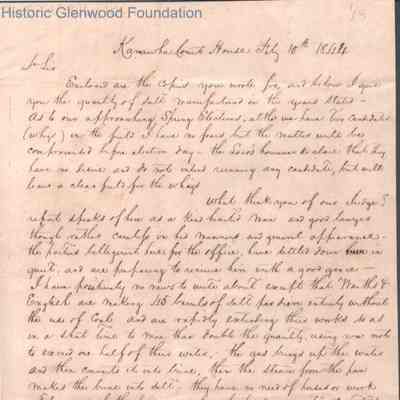 Historic Glenwood Foundation
Kanawha Court House Feby 10th 1844
Dr Sir
Enclosed are the copies you wrote for, and below I give
you the quantity of salt manufactured in the years stated —
As to our approaching Spring Elections, altho we have two candidates
(whig) in the field I have no fears but the matter will be
compromised before election day — the Locos however declare that they
have no and do not intend running any candidate, but will
leave a clear field for the whigs
What think you of our Judge?
report speaks of him as a kind hearted man and good lawyer
though rather careless in his manners and general appearance —
the parties belligerent here for the office, have settled down in
quiet, and are preparing to receive him with a good grace —
I have positively no news to write about except that
English are making 115 barrels of salt per day entirely without
the use of Coal and are rapidly extending their works so as
in a short time to more than double the quantity, using now not
to exceed one half of their water, the gas brings up the water
and then converts it into brine, then the steam from the pan
makes the brine into salt. they have no need of horses or work